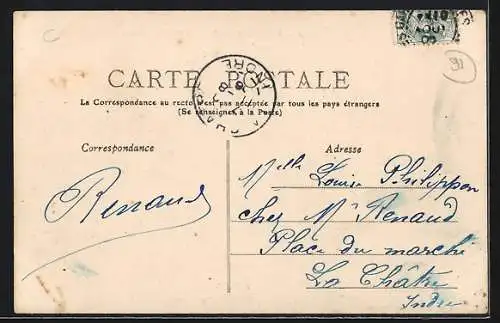 CARTE POSTALE
La Correspondance au recto n'est pas acceptée par tous les pays étrangers
(Se renseigner à la Poste)
Correspondance
Adresse
Renaud
Melle Louise Philippon
chez Mr Renaud
Place du marché
La Châtre
Indre